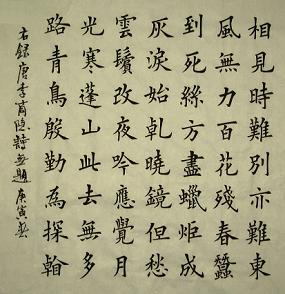 相見時難別亦難東
風無力百花殘春蠶
到死絲方盡蠟炬成
灰淚始乹曉鏡但愁
雲鬢改夜吟應覺月
光寒蓬山此去無多
路青鳥殷勤為探
右錄唐李商隱詩無題庚寅